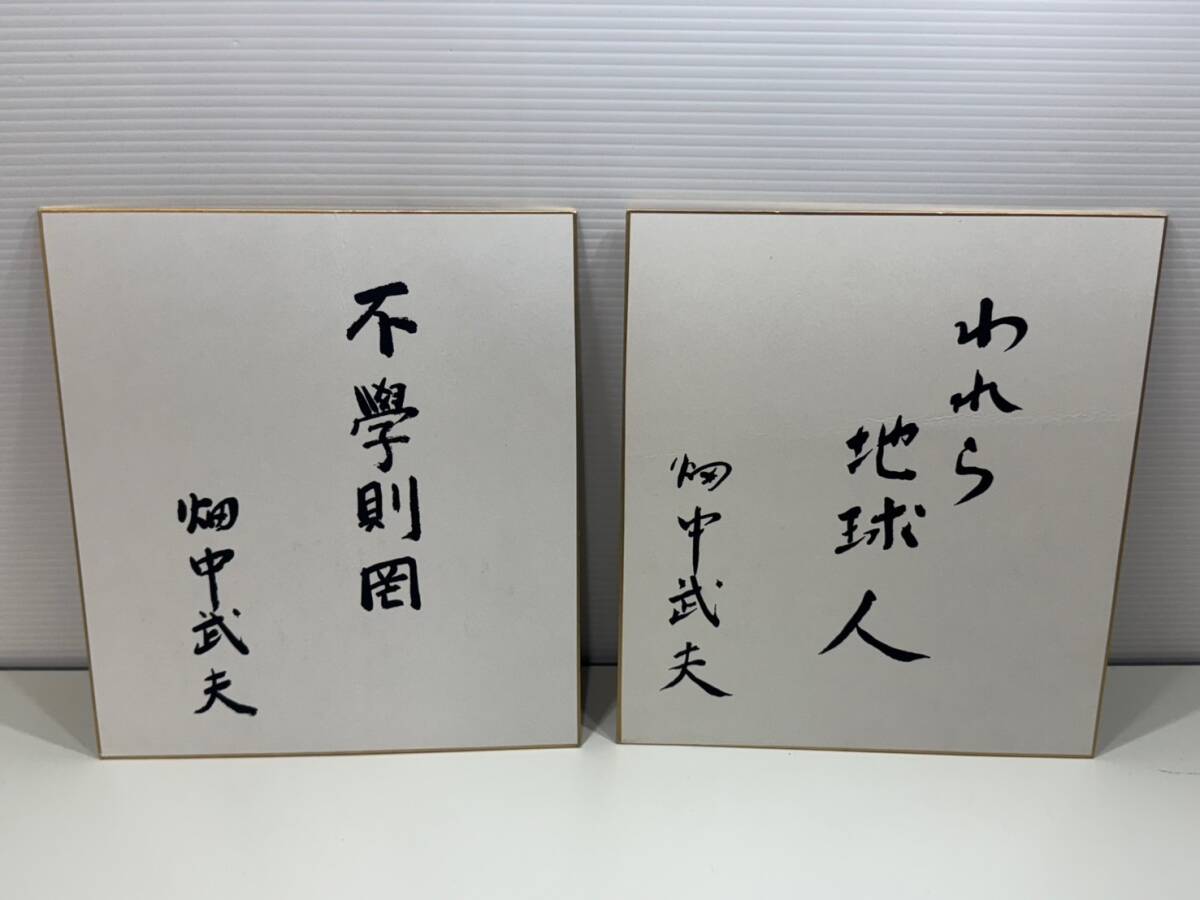 不學則罔
畑中武夫
われら
地球人
畑中武夫